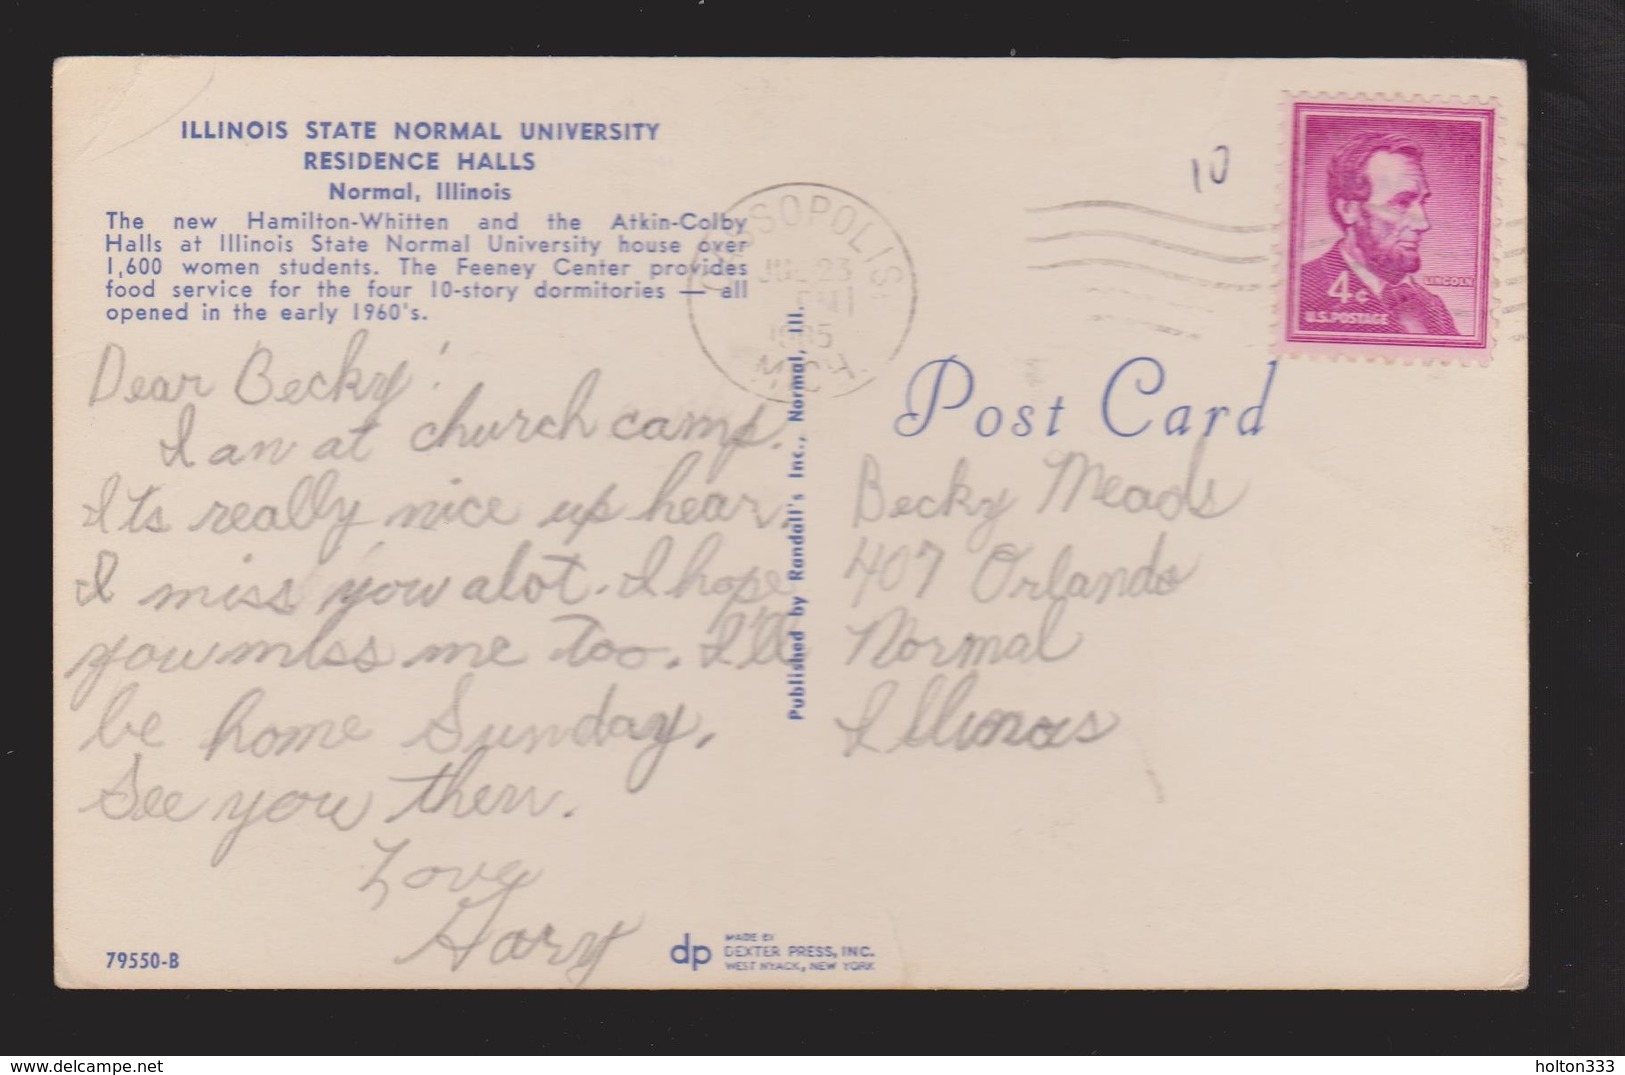 ILLINOIS STATE NORMAL UNIVERSITY
RESIDENCE HALLS
Normal, Illinois
The new Hamilton-Whitten and the Atkin-Colby
Halls at Illinois State Normal University house over
1,600 women students. The Feeney Center provides
food service for the four 10-story dormitories — all
opened in the early 1960's.
Dear Becky!
I am at church camp.
Its really nice up hear.
I miss you alot. I hope
you miss me too. I'll
be home Sunday.
See you then.
Love
Gary
79550-B
dp
MADE BY
DEXTER PRESS, INC.
WEST NYACK, NEW YORK
Published by Randall's Inc., Normal, Ill.
CASSOPOLIS
23
PM
MICH.
10
LINCOLN
4¢
U.S. POSTAGE
Post Card
Becky Meads
407 Orlando
Normal
Illinois
holton333